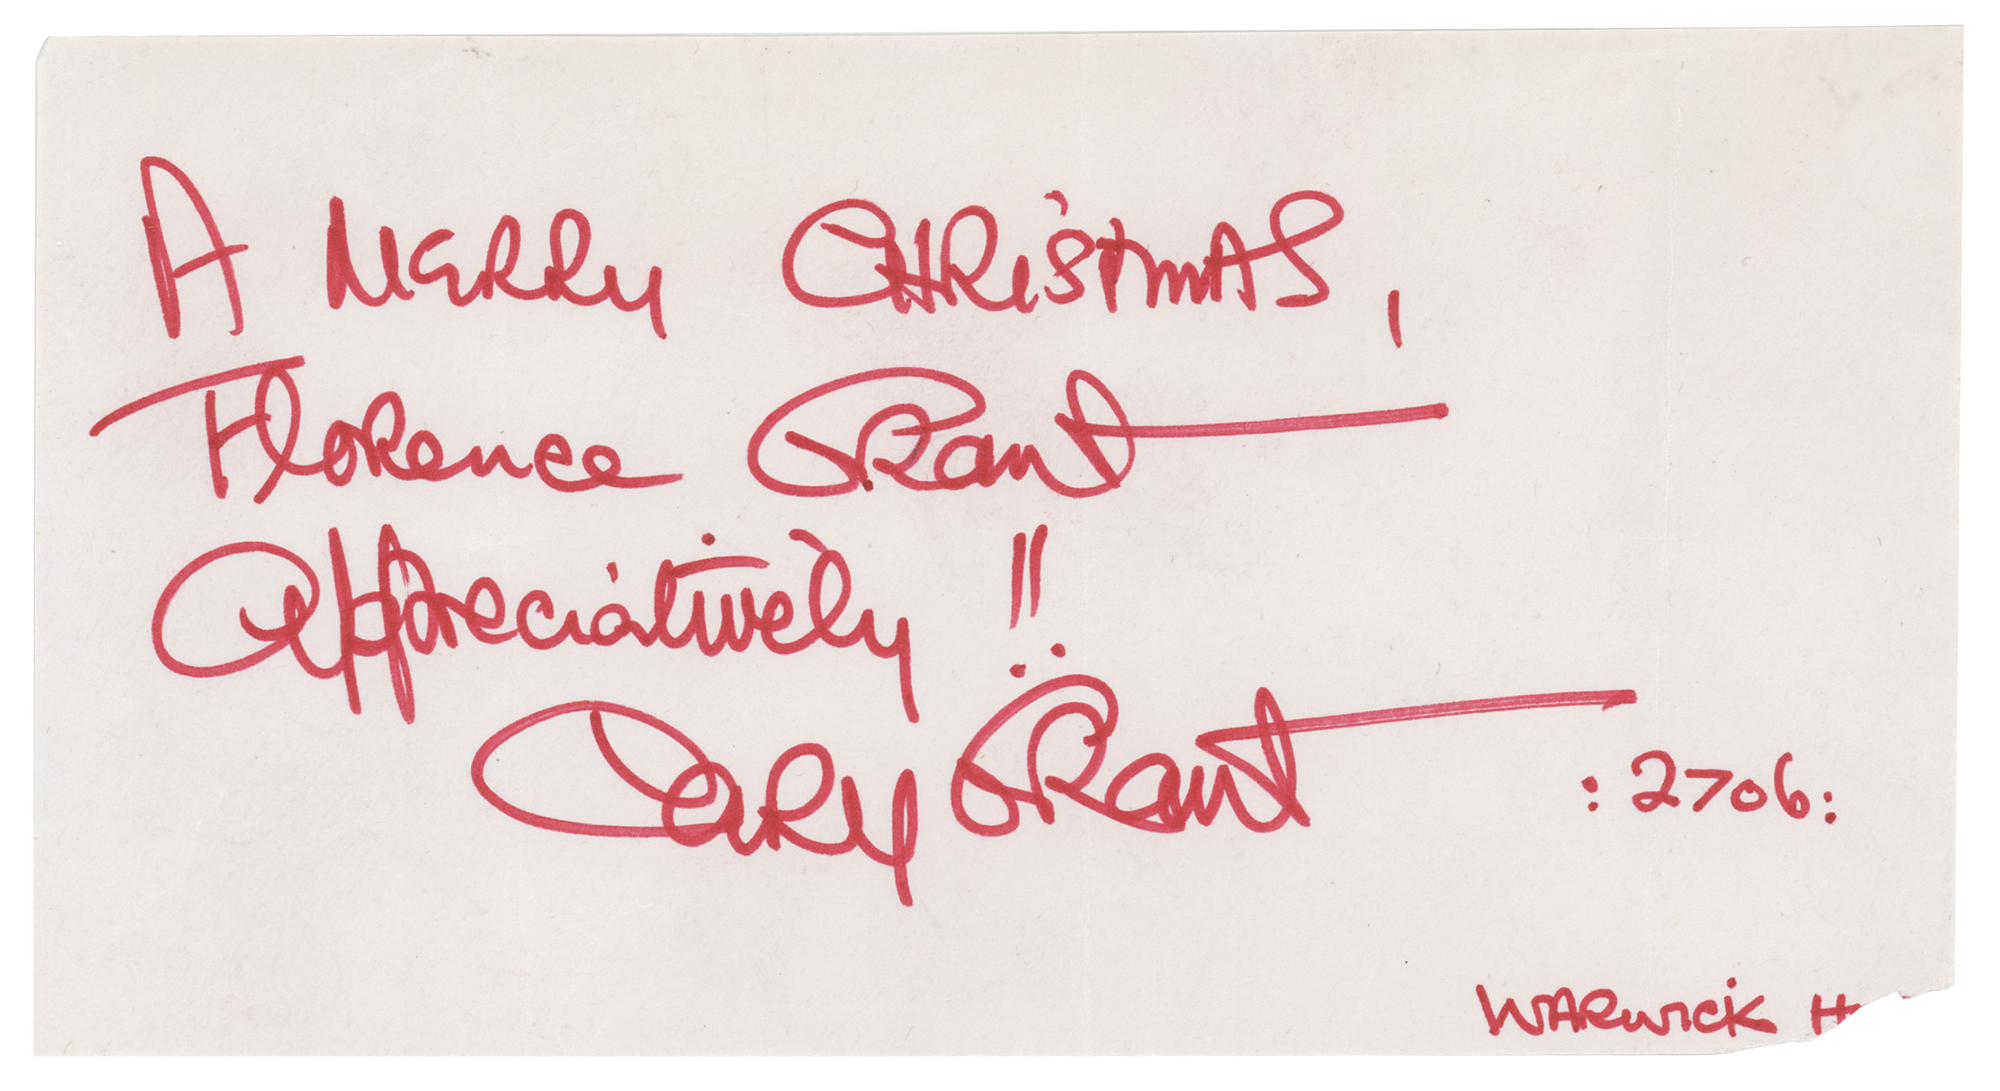 A MERRY CHRiSTMAS,
Florence GRant
Appreciatively !!
CaRy GRant
:2706:
WARWICK H